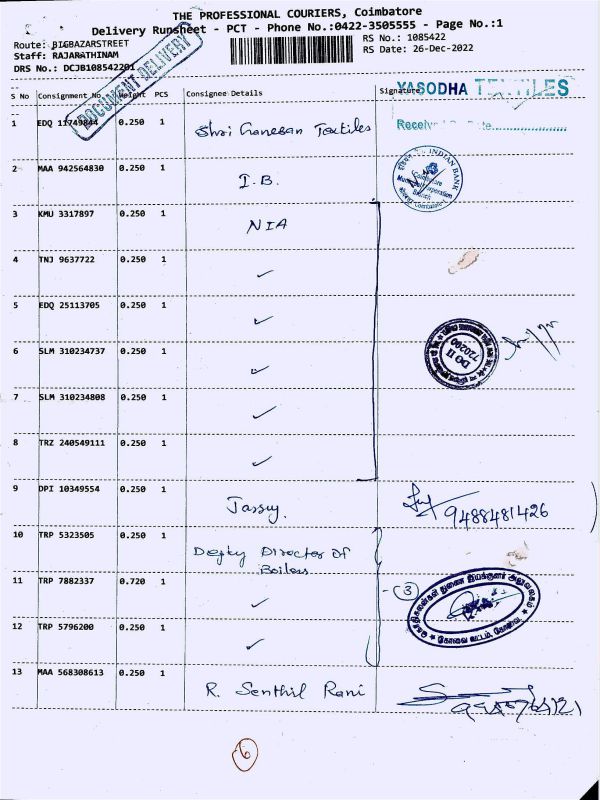 THE PROFESSIONAL COURIERS, Coimbatore
Delivery Runsheet - PCT - Phone No.:0422-3505555 - Page No.:1
Route: BIGBAZARSTREET RS No.: 1085422
Staff: RAJARATHINAM RS Date: 26-Dec-2022
DRS No.: DCJB108542201
DOCUMENT DELIVERY
S No Consignment No. Weight PCS Consignee Details Signature
YASODHA TEXTILES
1 EDQ 11749844 0.250 1 Shri Ganesan Textiles
2 MAA 942564830 0.250 1 I.B.
INDIAN BANK
3 KMU 3317897 0.250 1 NIA
4 TNJ 9637722 0.250 1 ✓
5 EDQ 25113705 0.250 1 ✓
6 SLM 310234737 0.250 1 ✓
DO II
720200
7 SLM 310234808 0.250 1 ✓
8 TRZ 240549111 0.250 1 ✓
9 DPI 10349554 0.250 1 Jassy. 9488481426
10 TRP 5323505 0.250 1 Director Of
Boilers
11 TRP 7882337 0.720 1 ✓ 3
12 TRP 5796200 0.250 1 ✓
13 MAA 568308613 0.250 1 R. Senthil Rani
6